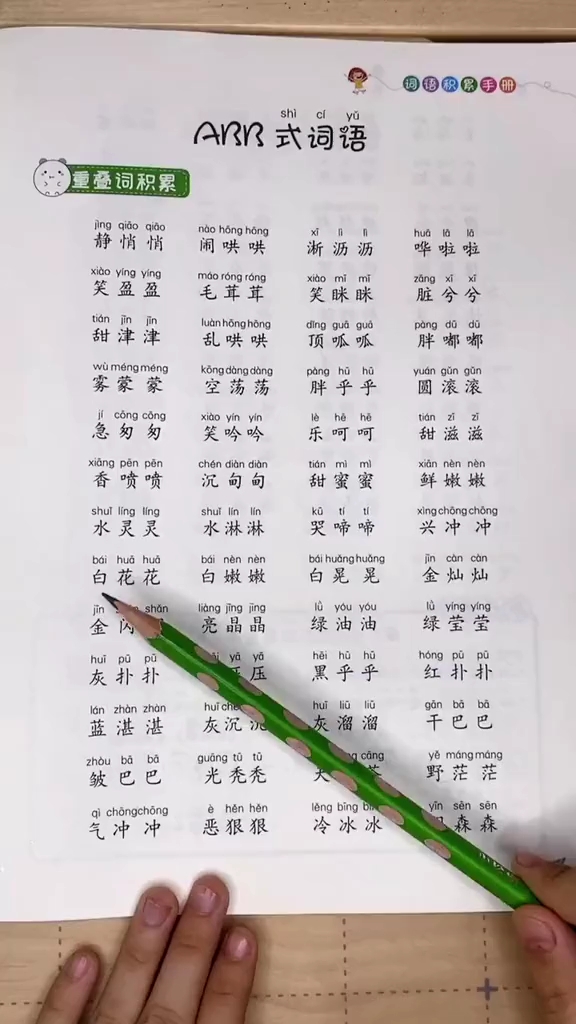 词语积累手册
shì cí yǔ
ABB 式词语
重叠词积累
jìng qiāo qiāo nào hōng hōng xī lì lì huā lā lā
静悄悄 闹哄哄 淅沥沥 哗啦啦
xiào yíng yíng máo róng róng xiào mī mī zāng xī xī
笑盈盈 毛茸茸 笑眯眯 脏兮兮
tián jīn jīn luàn hōng hōng dǐng guā guā pàng dū dū
甜津津 乱哄哄 顶呱呱 胖嘟嘟
wù méng méng kōng dàng dàng pàng hū hū yuán gǔn gǔn
雾蒙蒙 空荡荡 胖乎乎 圆滚滚
jí cōng cōng xiào yín yín lè hē hē tián zī zī
急匆匆 笑吟吟 乐呵呵 甜滋滋
xiāng pēn pēn chén diàn diàn tián mì mì xiān nèn nèn
香喷喷 沉甸甸 甜蜜蜜 鲜嫩嫩
shuǐ líng líng shuǐ lín lín kū tí tí xìng chōng chōng
水灵灵 水淋淋 哭啼啼 兴冲冲
bái huā huā bái nèn nèn bái huǎng huǎng jīn càn càn
白花花 白嫩嫩 白晃晃 金灿灿
jīn shǎn liàng jīng jīng lǜ yóu yóu lǜ yíng yíng
金闪 亮晶晶 绿油油 绿莹莹
huī pū pū yā yā hēi hū hū hóng pū pū
灰扑扑 压 黑乎乎 红扑扑
lán zhàn zhàn huī chén huī liū liū gān bā bā
蓝湛湛 灰沉沉 灰溜溜 干巴巴
zhòu bā bā guāng tū tū cāng yě máng máng
皱巴巴 光秃秃 野茫茫
qì chōng chōng è hěn hěn lěng bīng yīn sēn sēn
气冲冲 恶狠狠 冷冰冰 森森